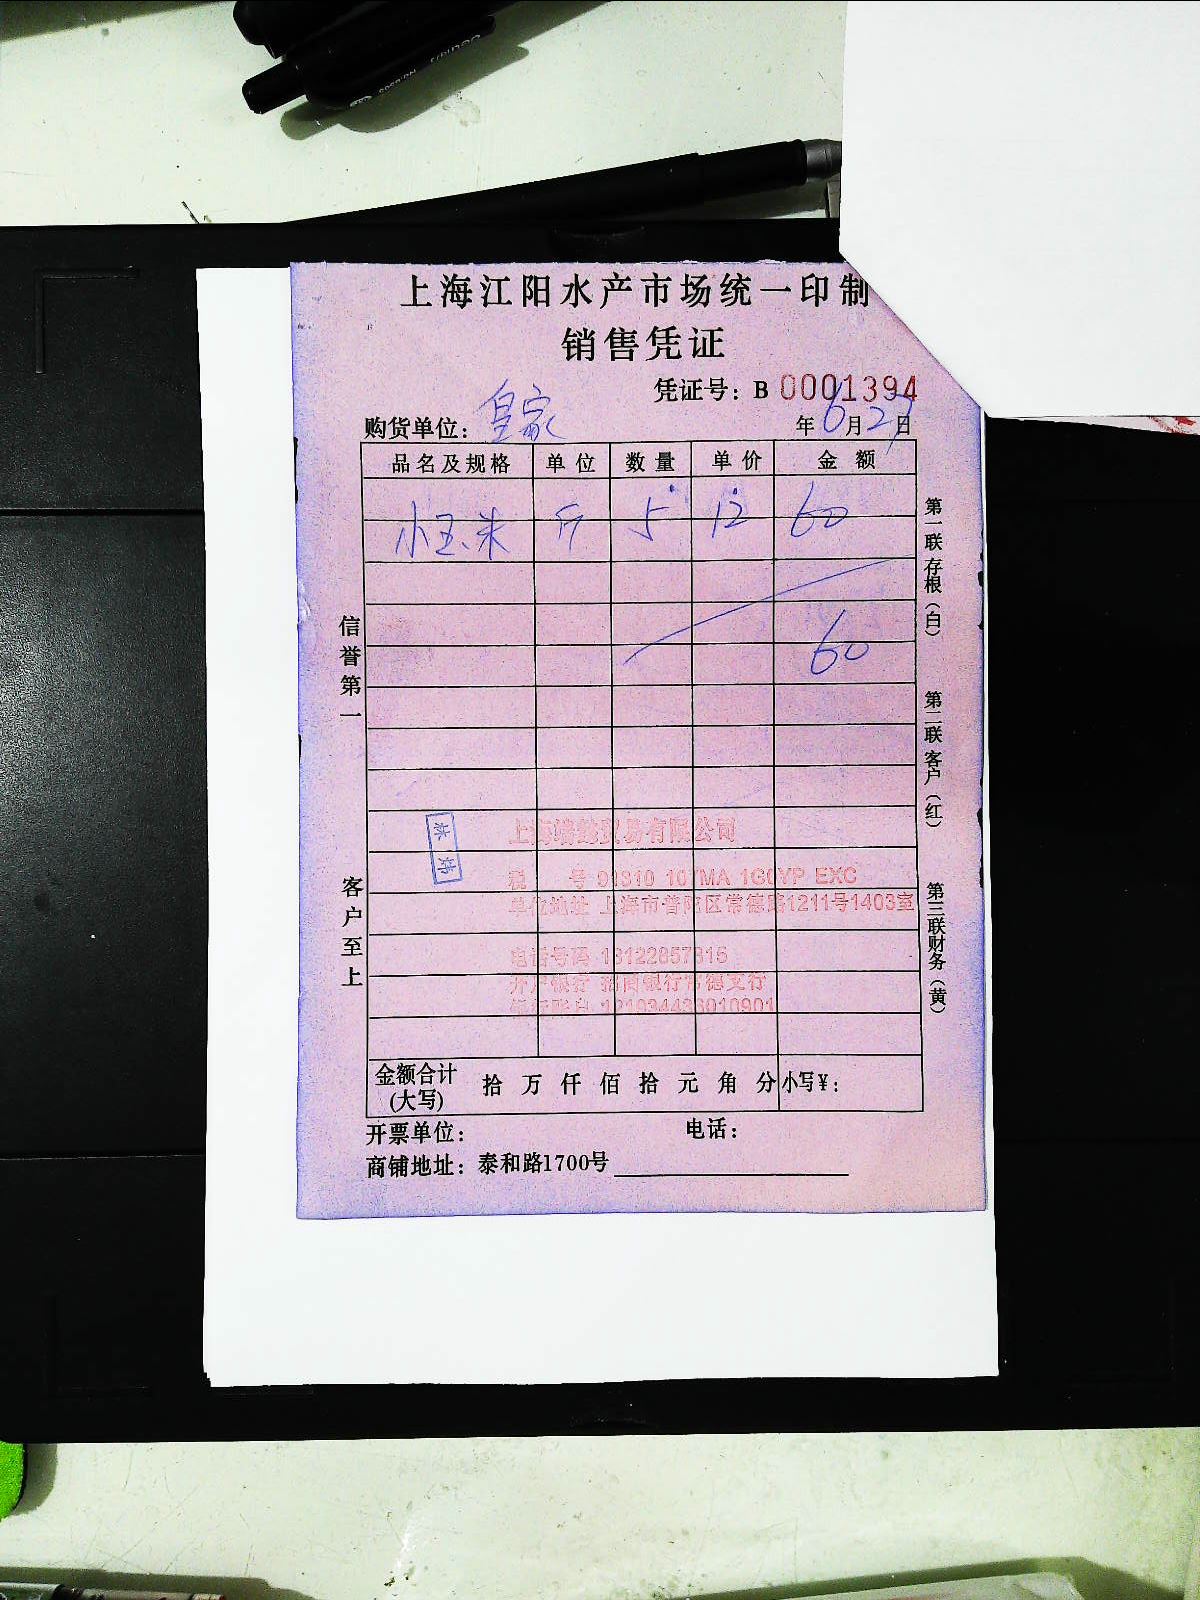 上海江阳水产市场统一印制
销售凭证
凭证号：B 0001394
购货单位：皇家 年 6月27日
品名及规格 单位 数量 单价 金额
小玉米 斤 5 12 60
60
信誉第一
客户至上
第一联存根（白）
第二联客户（红）
第三联财务（黄）
上海 贸易有限公司
税 号
单位地址 上海市普陀区常德路1211号1403室
电话号码 18122857815
开户银行 招商银行常德支行
银行账户
金额合计(大写) 拾 万 仟 佰 拾 元 角 分 小写¥：
开票单位： 电话：
商铺地址：泰和路1700号